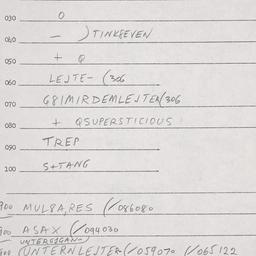 030 0
040 - ) TINK&EVEN
050 + Q
060 LEJTE- (306
070 G81MIRDEMLEJTER(306
080 + QSUPERSTICIOUS
090 TREP
100 S+TANG
900 MUL8A,RES (/086080
900 ASAX (/094030
900 UNTERNLEJTER(/059070 (/065122